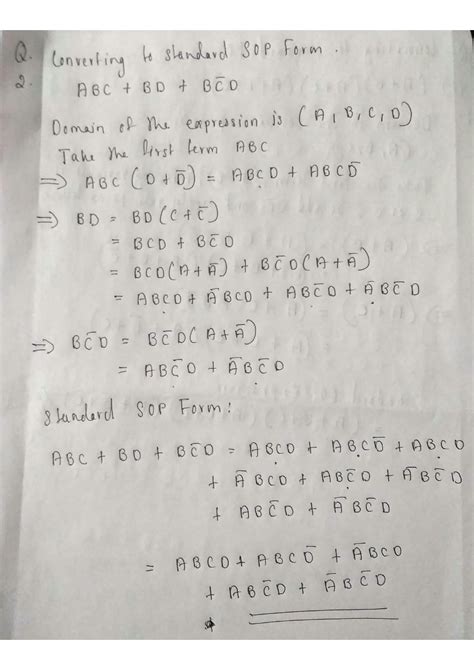 Q. Converting to standard SOP Form.
2. ABC + BD + BC̄D
Domain of the expression is (A, B, C, D)
Take the first term ABC
⇒ ABC (D+D̄) = ABCD + ABCD̄
⇒ BD = BD(C+C̄)
= BCD + BC̄D
= BCD(A+Ā) + BC̄D(A+Ā)
= ABCD + ĀBCD + ABC̄D + ĀBC̄D
⇒ BC̄D = BC̄D(A+Ā)
= ABC̄D + ĀBC̄D
Standard SOP Form:
ABC + BD + BC̄D = ABCD + ABCD̄ + ABCD
+ ĀBCD + ABC̄D + ĀBC̄D
+ ABC̄D + ĀBC̄D
= ABCD + ABCD̄ + ĀBCD
+ ABC̄D + ĀBC̄D